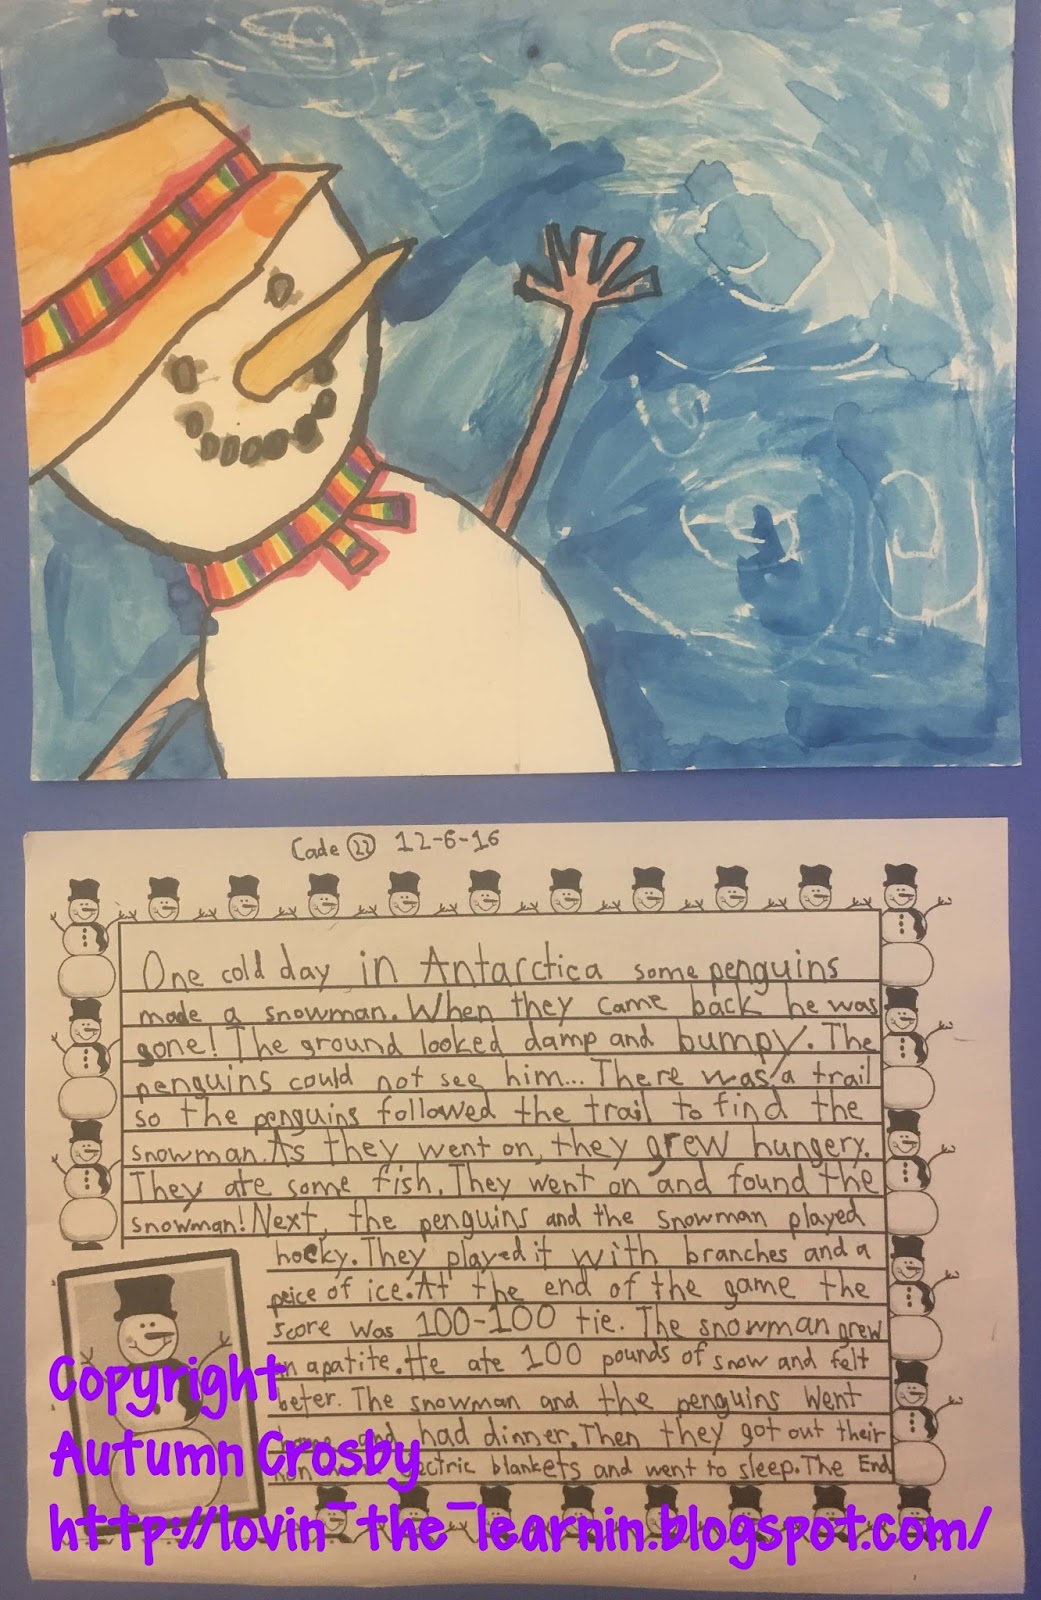 Cade 22 12-6-16
One cold day in Antarctica some penguins
made a snowman. When they came back he was
gone! The ground looked damp and bumpy. The
penguins could not see him... There was a trail
so the penguins followed the trail to find the
snowman. As they went on, they grew hungery.
They ate some fish. They went on and found the
snowman! Next, the penguins and the snowman played
hocky. They played it with branches and a
peice of ice. At the end of the game the
score was 100-100 tie. The snowman grew
an apatite. He ate 100 pounds of snow and felt
beter. The snowman and the penguins went
and had dinner. Then they got out their
blankets and went to sleep. The End
Copyright
Autumn Crosby
http://lovin-the-learnin.blogspot.com/